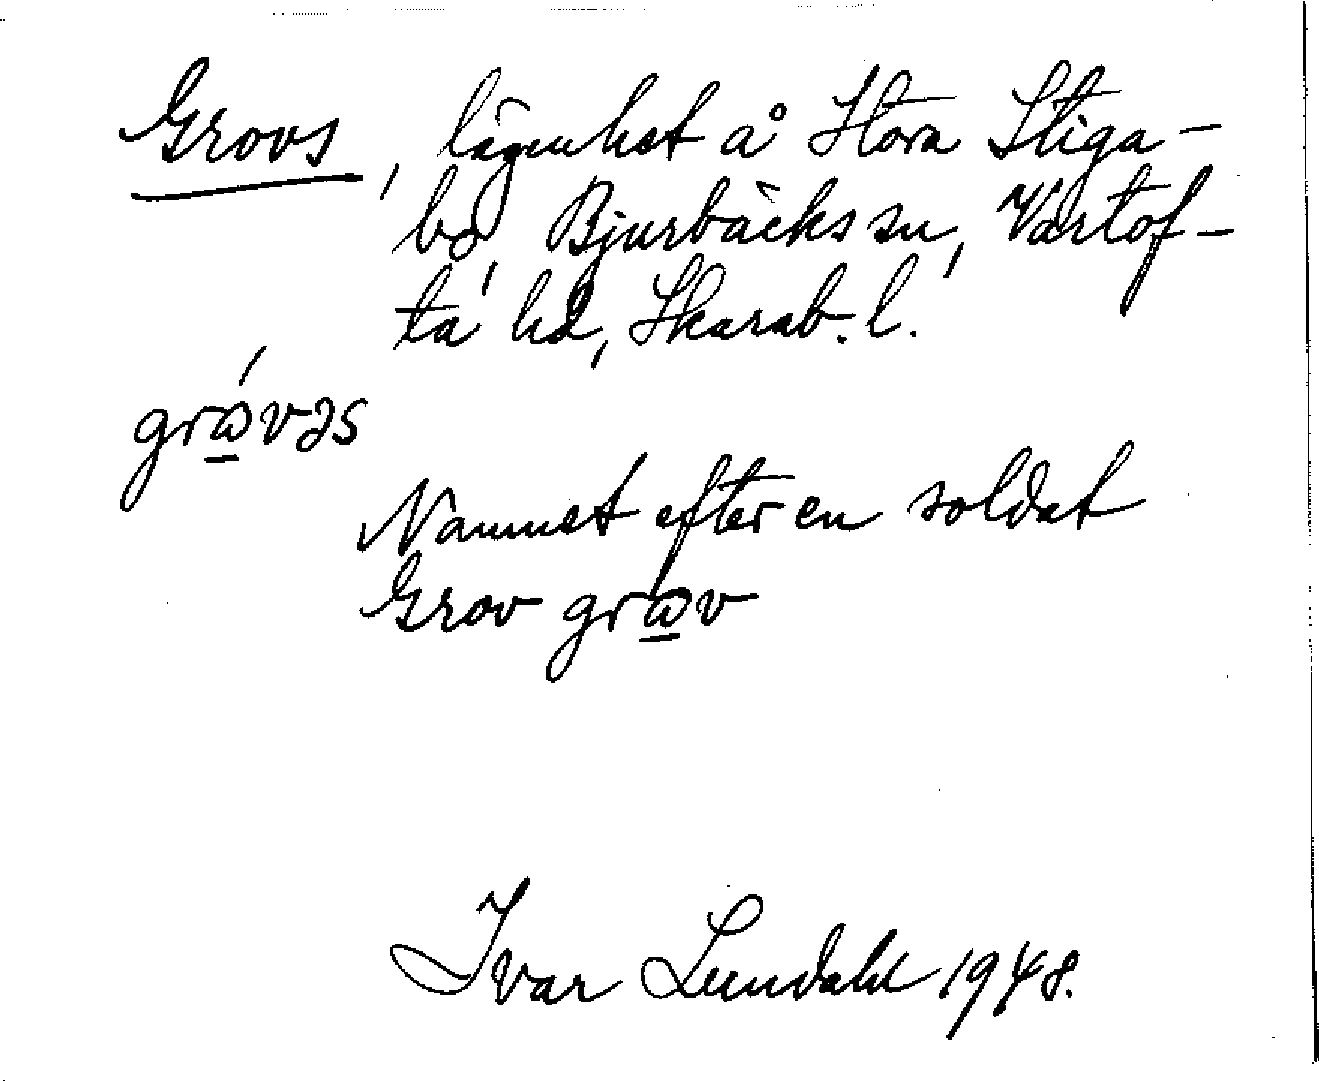 Grovs, lägenhet å Stora Stiga-
bo, Bjurbäcks sn, Vartof-
ta hd, Skarab. l.
grώ̲vəs
Namnet efter en soldat
Grov grώ̲v
Ivar Lundahl 1948.